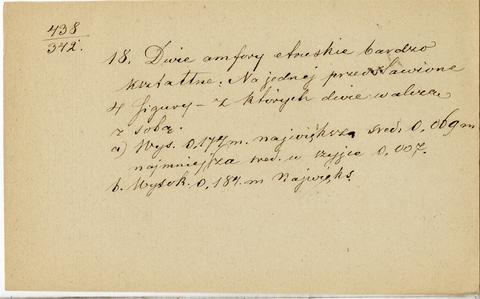 438
342.
18. Dwie amfory etruskie bardzo
kształtne. Na jednej przedstawione
4 figury – z których dwie walczą
z sobą.
a) Wys. 0,177 m. największa śred. 0,069 m
najmniejsza śred. w szyjce 0,007.
b. Wysok. 0,184. m Najwięks.